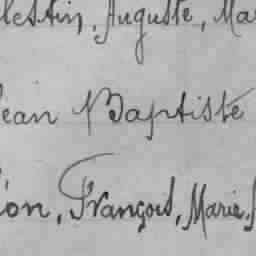 lestin, Auguste, Ma
ean Baptiste
ion, François, Marie,